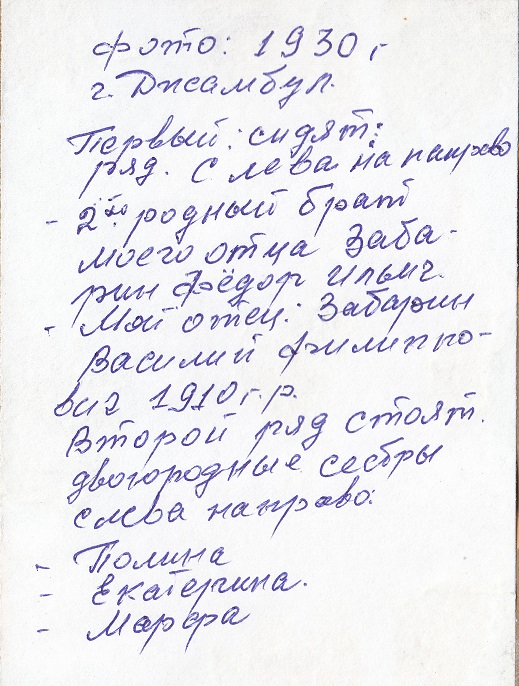 Фото: 1930 г
г. Джамбул.
Первый: сидят:
ряд. С лева на направо
- 2х родный брат
моего отца Заба-
рин Фёдор Ильич.
- Мой отец: Забарин
Василий Филиппо-
вич 1910 г.р.
Второй ряд стоят.
двогородные сестры
слева направо:
- Полина
- Екатерина.
- Марфа